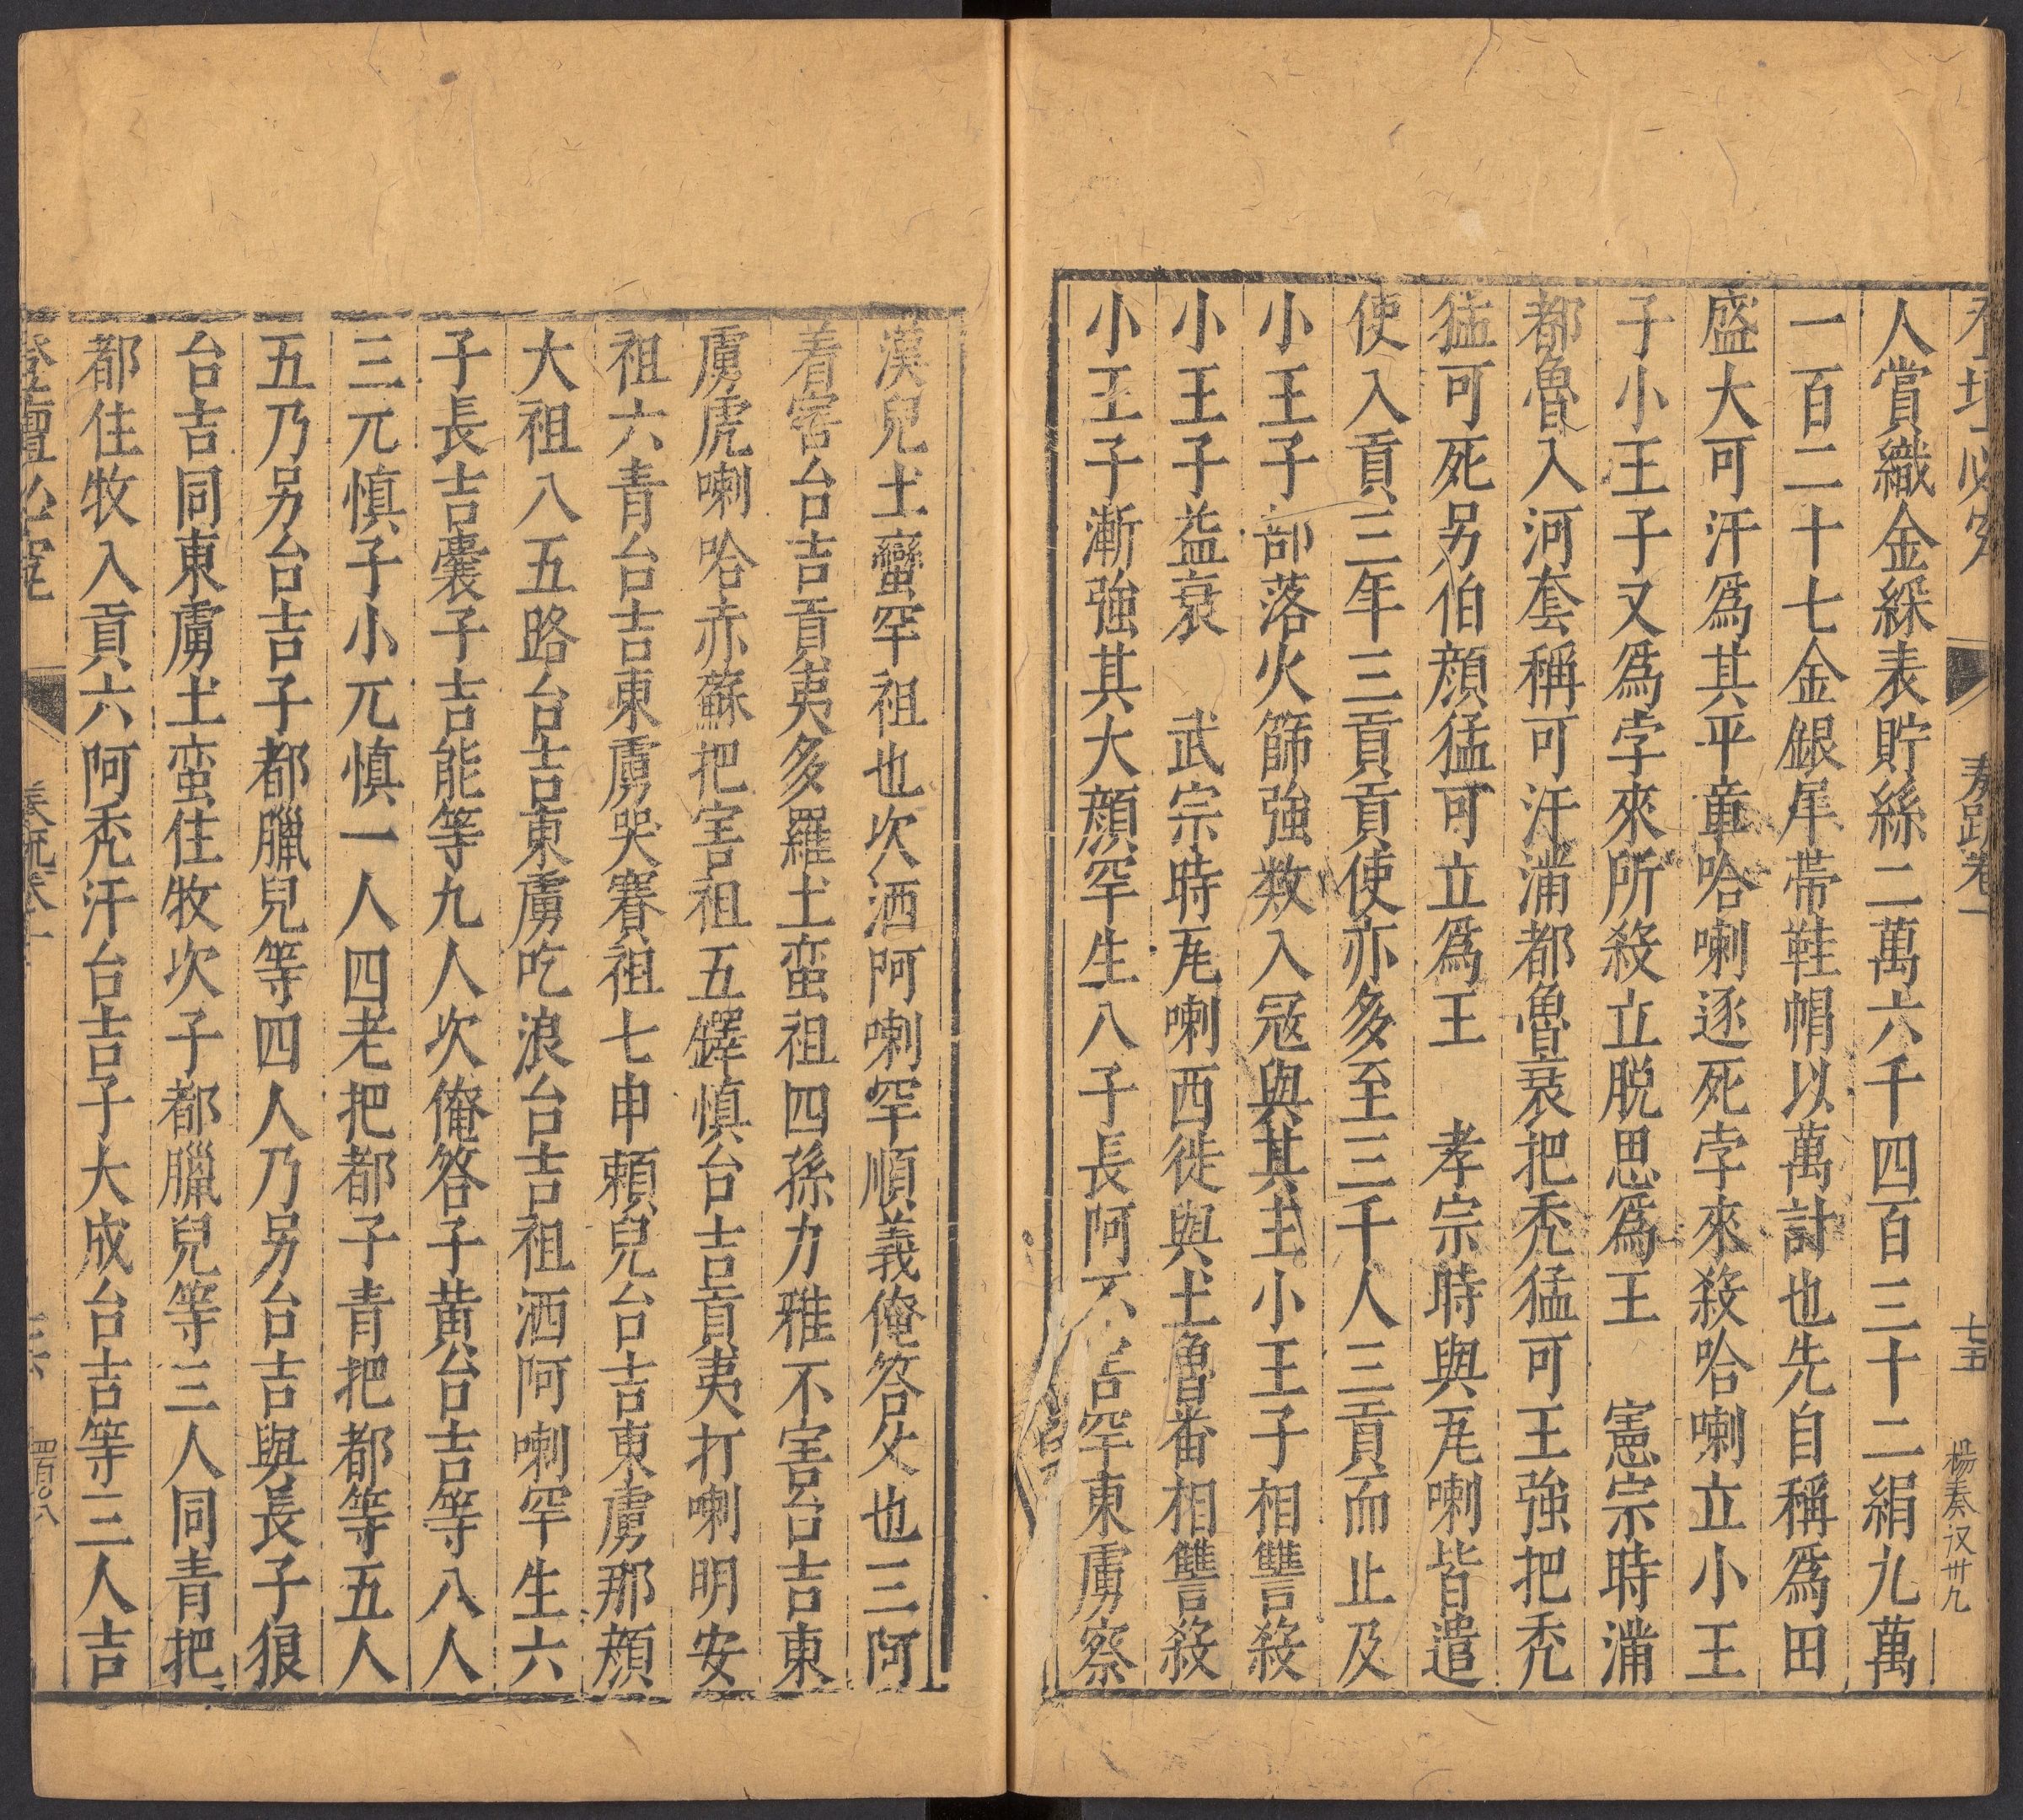 登壇必究 奏疏卷一 七五 楊奏汉卅九
人賞織金綵表貯絲二萬六千四百三十二絹九萬
一百二十七金銀犀帶鞋帽以萬計也先自稱爲田
盛大可汗爲其平章哈喇逐死孛來殺哈喇立小王
子小王子又爲孛來所殺立脱思爲王 憲宗時滿
都魯入河套稱可汗滿都魯衰把禿猛可王強把禿
猛可死另伯顔猛可立爲王 孝宗時與瓦喇皆遣
使入貢三年三貢貢使亦多至三千人三貢而止及
小王子部落火篩強数入冦與其主小王子相讐殺
小王子益衰 武宗時瓦喇西徙與土魯番相讐殺
小王子漸強其大顔罕生八子長阿不害罕東虜察
漢兒土蠻罕祖也次洒阿喇罕順義俺答父也三阿
着害台吉貢夷多羅土蛮祖四孫力雅不害台吉東
虜虎喇哈赤蘇把害祖五鐸慎台吉貢夷打喇明安
祖六青台吉東虜哭賽祖七申頼兒台吉東虜那顔
大祖八五路台吉東虜吃浪台吉祖洒阿喇罕生六
子長吉囊子吉能等九人次俺答子黄台吉等八人
三兀慎子小兀慎一人四老把都子青把都等五人
五乃另台吉子都臘兒等四人乃另台吉與長子狼
台吉同東虜土蛮住牧次子都臘兒等三人同青把
都住牧入貢六阿禿汗台吉子大成台吉等三人吉
登壇必究 奏疏卷一 四百〇八